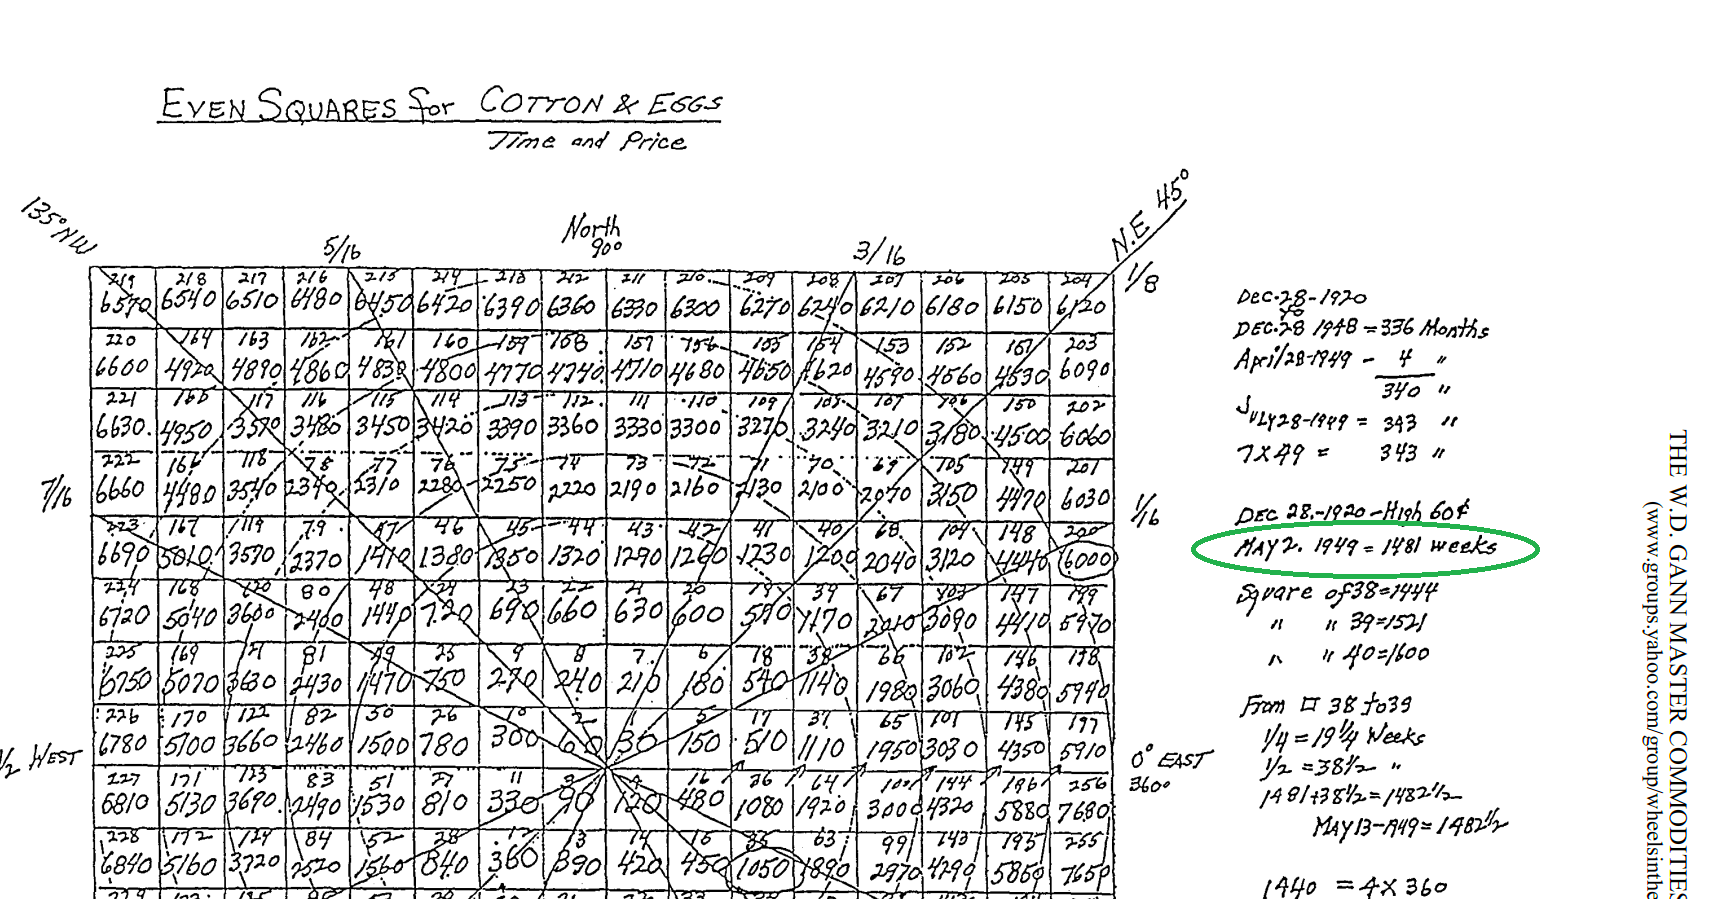 EVEN SQUARES for COTTON & EGGS
Time and Price
135° NW
5/16
North
90°
3/16
N.E 45°
1/8
219 218 217 216 215 214 213 212 211 210 209 208 207 206 205 204
6570 6540 6510 6480 6450 6420 6390 6360 6330 6300 6270 6240 6210 6180 6150 6120
220 164 163 162 161 160 159 158 157 156 155 154 153 152 151 203
6600 4920 4890 4860 4830 4800 4770 4740 4710 4680 4650 4620 4590 4560 4530 6090
221 165 117 116 115 114 113 112 111 110 109 108 107 106 150 202
6630 4950 3570 3480 3450 3420 3390 3360 3330 3300 3270 3240 3210 3180 4500 6060
222 166 118 78 77 76 75 74 73 72 71 70 69 105 149 201
6660 4480 3540 2340 2310 2280 2250 2220 2190 2160 2130 2100 2070 3150 4470 6030
7/16
1/16
223 167 119 79 47 46 45 44 43 42 41 40 68 104 148 200
6690 5010 3570 2370 1410 1380 1350 1320 1290 1260 1230 1200 2040 3120 4440 6000
224 168 120 80 48 24 23 22 21 20 19 39 67 103 147 199
6720 5040 3600 2400 1440 720 690 660 630 600 590 1170 2010 3090 4410 5970
225 169 121 81 49 25 9 8 7 6 18 38 66 102 146 198
6750 5070 3630 2430 1470 750 270 240 210 180 540 1140 1980 3060 4380 5940
226 170 122 82 50 26 10 2 1 5 17 37 65 101 145 197
6780 5100 3660 2460 1500 780 300 60 30 150 510 1110 1950 3030 4350 5910
1/2 WEST
0° EAST
360°
227 171 123 83 51 27 11 3 4 16 36 64 100 144 196 256
6810 5130 3690 2490 1530 810 330 90 120 480 1080 1920 3000 4320 5880 7680
228 172 124 84 52 28 12 13 14 15 35 63 99 143 195 255
6840 5160 3720 2520 1560 840 360 390 420 450 1050 1890 2970 4290 5850 7650
Dec. 28-1920
to
DEC. 28 1948 = 336 Months
April 28-1949 - 4 "
340 "
July 28-1949 = 343 "
7 X 49 = 343 "
DEC 28.-1920 - High 60¢
MAY 2. 1949 = 1481 weeks
Square of 38 = 1444
" " 39 = 1521
" " 40 = 1600
From □ 38 to 39
1/4 = 19 1/4 Weeks
1/2 = 38 1/2 "
1481+38 1/2 = 1482 1/2
MAY 13-1949 = 1482 1/2
1440 = 4 X 360
THE W.D. GANN MASTER COMMODITIES
(www.groups.yahoo.com/group/wheelsinthe